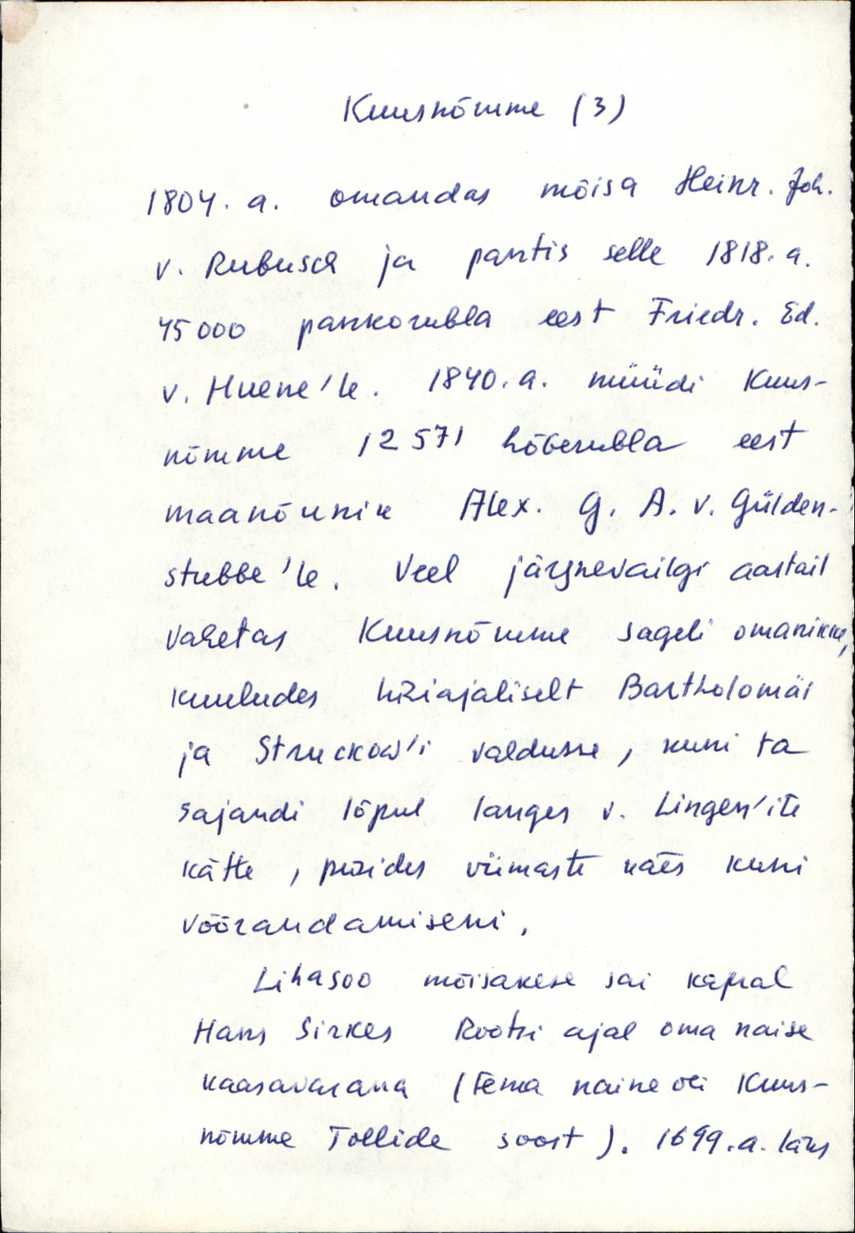 Kuusnõmme (3)
1804. a. omandas mõisa Heinr. Joh.
v. Rubusch ja pantis selle 1818. a.
45 000 pankorubla eest Friedr. Ed.
v. Huene'le. 1840. a. müüdi Kuus-
nõmme 12 571 hõberubla eest
maanõunik Alex. G. A. v. Gülden-
stubbe'le. Veel järgnevailgi aastail
vahetas Kuusnõmme sageli omanikke,
kuuludes lühiajaliselt Bartholomäi
ja Struckow'i valdusse, kuni ta
sajandi lõpul langes v. Lingen'ite
kätte, püsides viimaste käes kuni
võõrandamiseni.
Lihasoo mõisakese sai kapral
Hans Sirkes Rootsi ajal oma naise
kaasavarana (tema naine oli Kuus-
nõmme Tollide soost). 1699. a. läks